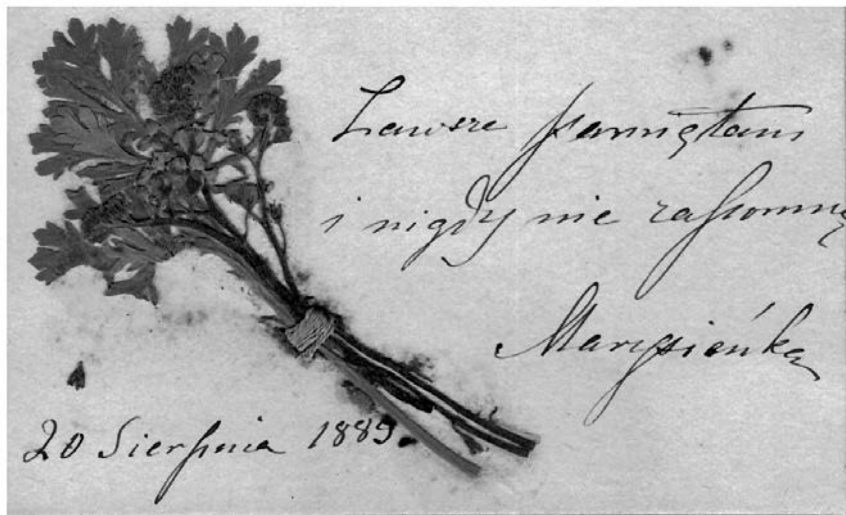 Zawsze pamiętam
i nigdy nie zapomnę
Marysieńką
20 Sierpnia 1889